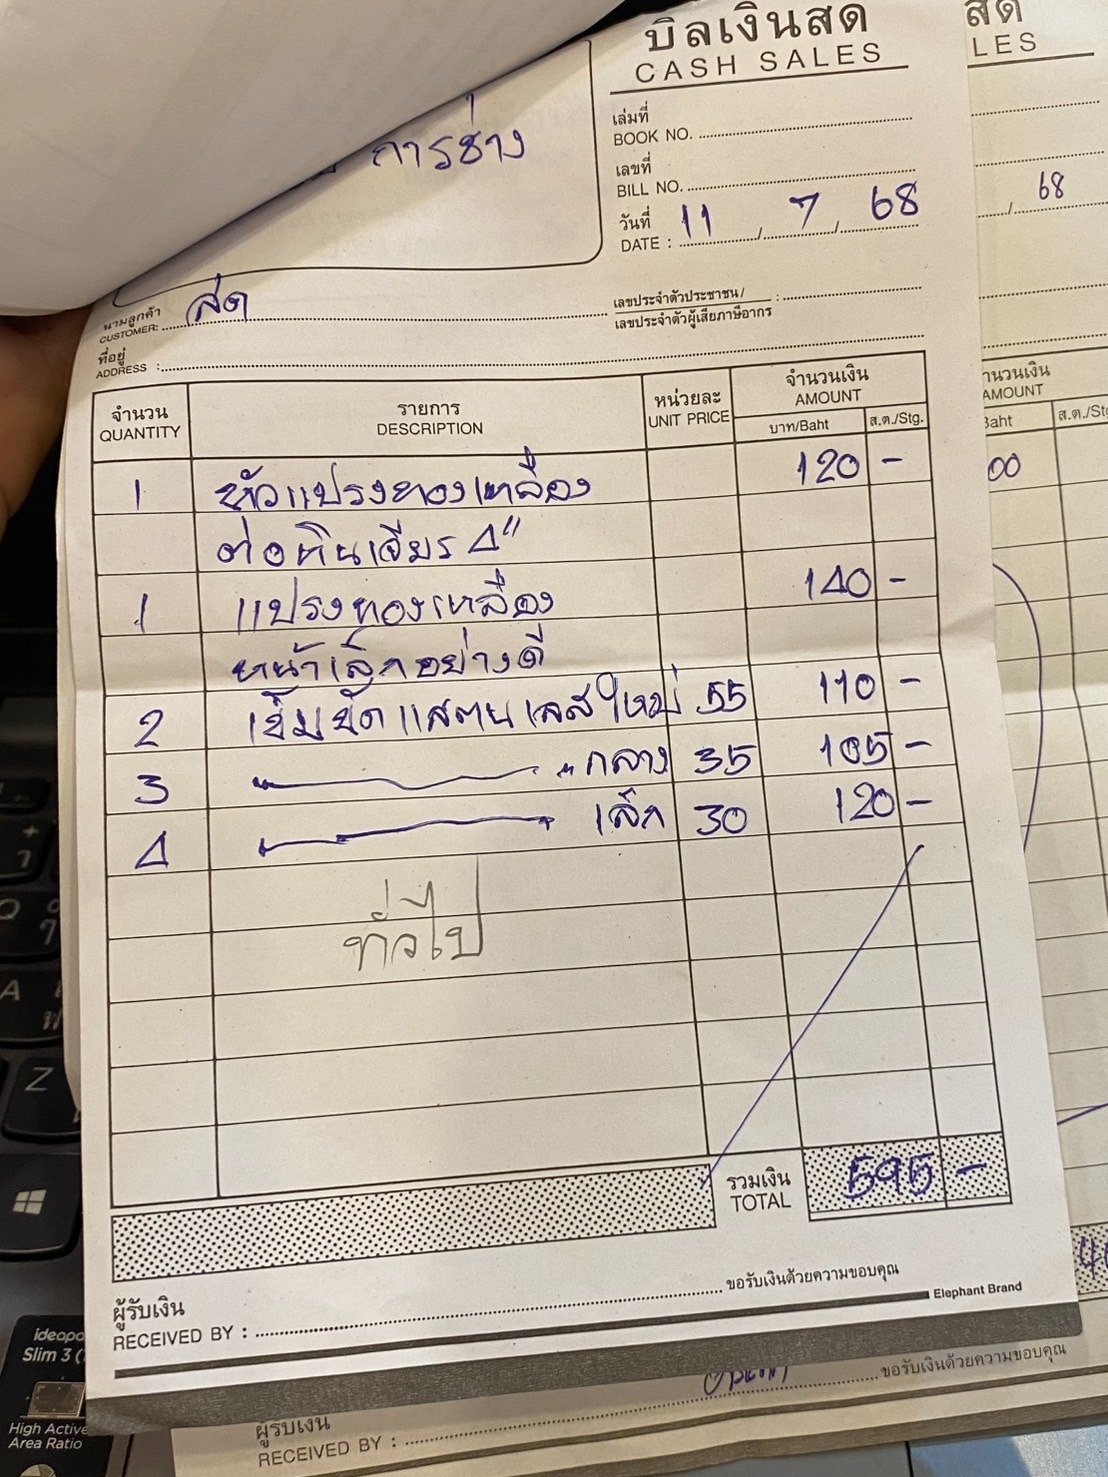 บิลเงินสด
CASH SALES
การช่าง
เล่มที่
BOOK NO.
เลขที่
BILL NO.
วันที่
DATE : 11 / 7 / 68
นามลูกค้า
CUSTOMER: สด
เลขประจำตัวประชาชน/
เลขประจำตัวผู้เสียภาษีอากร :
ที่อยู่
ADDRESS :
จำนวน รายการ หน่วยละ จำนวนเงิน
QUANTITY DESCRIPTION UNIT PRICE AMOUNT
บาท/Baht ส.ต./Stg.
1 หัวแปรงทองเหลือง 120 -
ต่อหินเจียร 4"
1 แปรงทองเหลือง 140 -
หน้าเล็กอย่างดี
2 เข็มขัดแสตนเลสใหม่ 55 110 -
3 " กลาง 35 105 -
4 เล็ก 30 120 -
ทั่วไป
รวมเงิน
TOTAL 595 -
ขอรับเงินด้วยความขอบคุณ
ผู้รับเงิน
RECEIVED BY :
Elephant Brand
สด
LES
68
านวนเงิน
AMOUNT
Baht ส.ต./Stg
00
ขอรับเงินด้วยความขอบคุณ
ผู้รับเงิน
RECEIVED BY :
Slim 3
High Active
Area Ratio